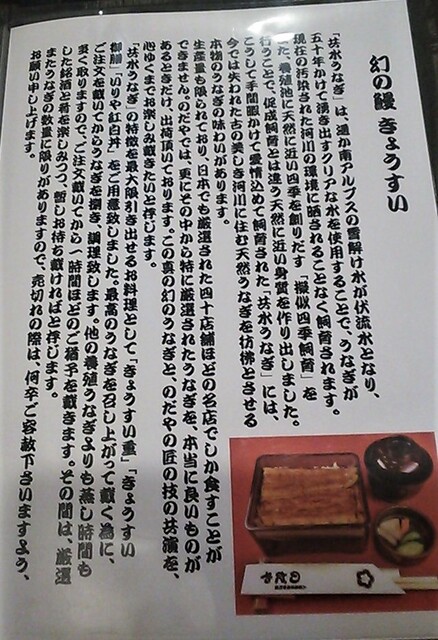 幻の鰻 きょうすい
「共水うなぎ」は、遥か南アルプスの雪解け水が伏流水となり、
五十年かけて湧き出すクリアな水を使用することで、うなぎが
現在の汚染された河川の環境に晒されることなく飼育されます。
また、養殖池に天然に近い四季を創りだす「擬似四季飼育」を
行うことで、促成飼育とは違う天然に近い身質を作り出しました。
こうして手間暇かけて愛情込めて飼育された「共水うなぎ」には、
今では失われた古の美しき河川に住む天然うなぎを彷彿とさせる
本物のうなぎの味わいがあります。
生産量も限られており、日本でも厳選された四十店舗ほどの名店でしか食すことが
できません。のだやでは、更にその中から特に厳選されたうなぎを、本当に良いものが
あるときだけ、出荷頂いております。この真の幻のうなぎと、のだやの匠の技の共演を、
心ゆくまでお楽しみ戴きたいと存じます。
「共水うなぎ」の特徴を最大限引き出せるお料理として「きょうすい重」「きょうすい
御膳」「いりや紅白丼」をご用意致しました。最高のうなぎを召し上がって戴く為に、
ご注文を戴いてからうなぎを捌き、調理致します。他の養殖うなぎよりも蒸し時間も
多く取りますので、ご注文戴いてから一時間ほどのご猶予を戴きます。その間は、厳選
した銘酒と肴を楽しみつつ、暫しお待ち戴ければと存じます。
またうなぎの数量に限りがありますので、売切れの際は、何卒ご容赦下さいますよう、
お願い申し上げます。